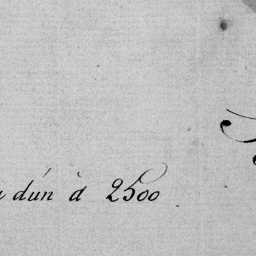 dún à 2500